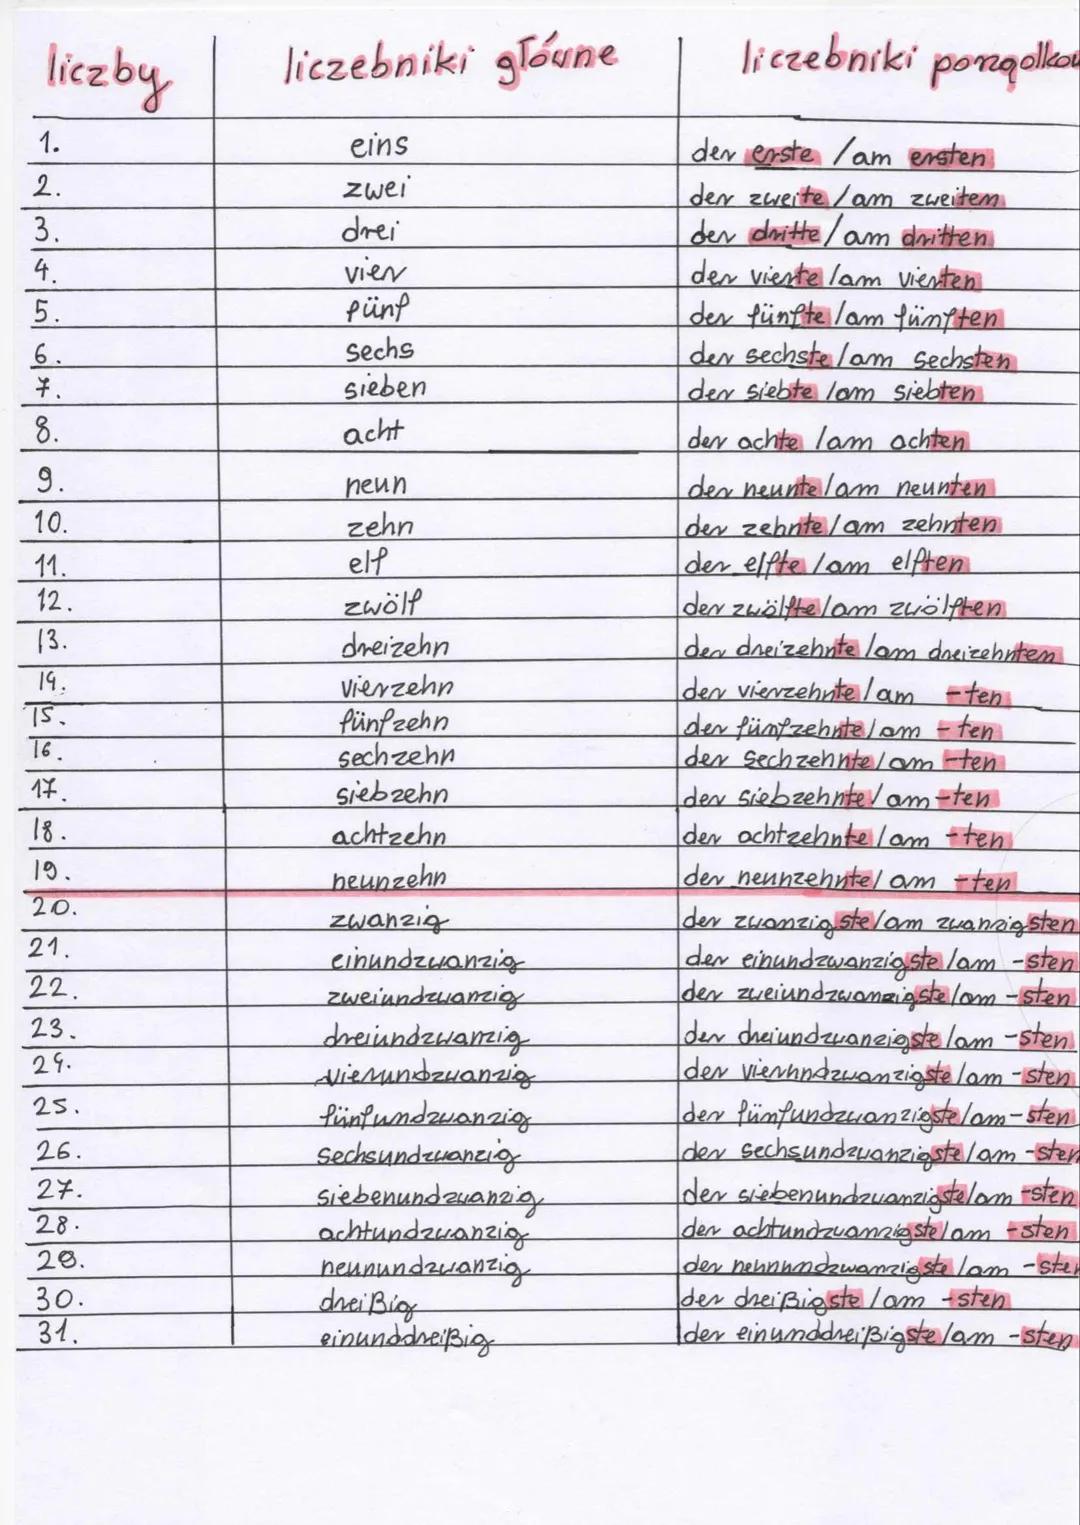 liczby liczebniki główne liczebniki porządkow
1. eins der erste /am ersten
2. zwei der zweite /am zweiten
3. drei der dritte /am dritten
4. vier der vierte /am vierten
5. fünf der fünfte /am fünften
6. sechs der sechste /am sechsten
7. sieben der siebte /am siebten
8. acht der achte /am achten
9. neun der neunte /am neunten
10. zehn der zehnte /am zehnten
11. elf der elfte /am elften
12. zwölf der zwölfte /am zwölften
13. dreizehn der dreizehnte /am dreizehnten
14. vierzehn der vierzehnte /am -ten
15. fünfzehn der fünfzehnte /am -ten
16. sechzehn der sechzehnte /am -ten
17. siebzehn der siebzehnte /am -ten
18. achtzehn der achtzehnte /am -ten
19. neunzehn der neunzehnte /am -ten
20. zwanzig der zwanzigste /am zwanzigsten
21. einundzwanzig der einundzwanzigste /am -sten
22. zweiundzwanzig der zweiundzwanzigste /am -sten
23. dreiundzwanzig der dreiundzwanzigste /am -sten
24. vierundzwanzig der vierundzwanzigste /am -sten
25. fünfundzwanzig der fünfundzwanzigste /am -sten
26. sechsundzwanzig der sechsundzwanzigste /am -sten
27. siebenundzwanzig der siebenundzwanzigste /am -sten
28. achtundzwanzig der achtundzwanzigste /am -sten
29. neunundzwanzig der neunundzwanzigste /am -sten
30. dreißig der dreißigste /am -sten
31. einunddreißig der einunddreißigste /am -sten